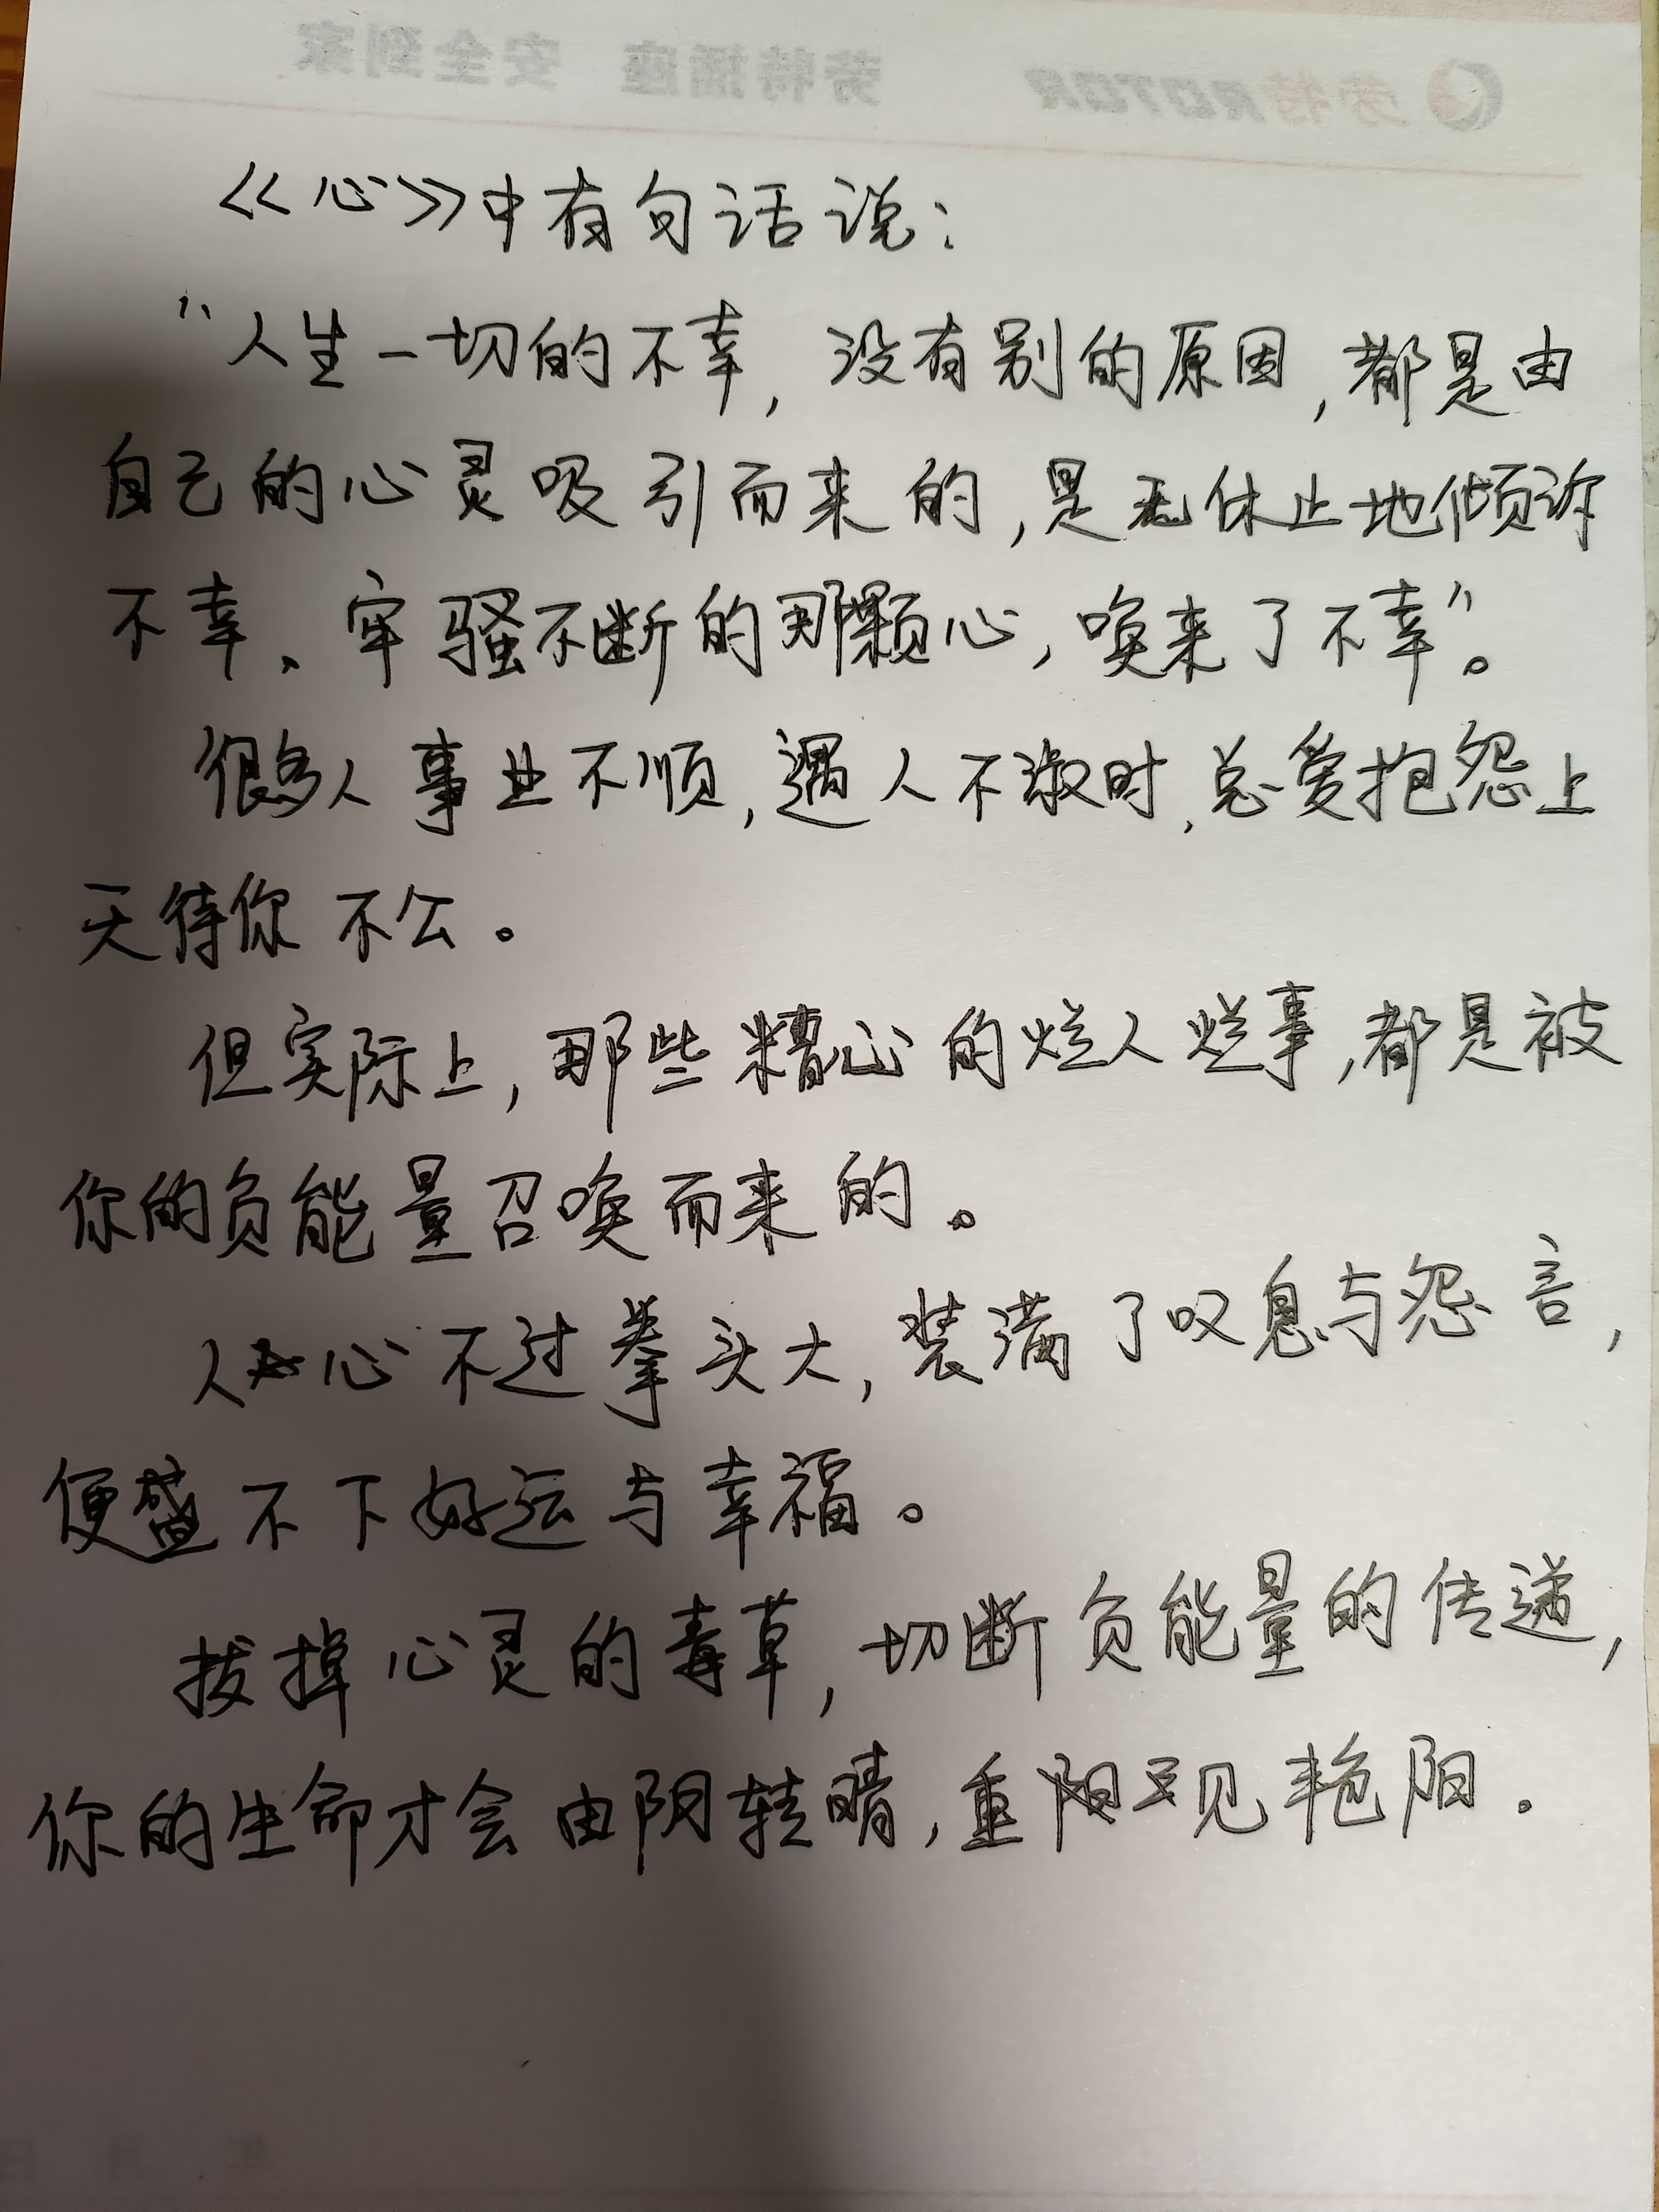 劳特ROTOR 劳特插座 安全到家
《心》中有句话说：
“人生一切的不幸，没有别的原因，都是由
自己的心灵吸引而来的，是无休止地倾诉
不幸、牢骚不断的那颗心，唤来了不幸”。
很多人事业不顺，遇人不淑时，总爱抱怨上
天待你不公。
但实际上，那些糟心的烂人烂事，都是被
你的负能量召唤而来的。
人心不过拳头大，装满了叹息与怨言，
便盛不下好运与幸福。
拔掉心灵的毒草，切断负能量的传递，
你的生命才会由阴转晴，重见艳阳.
年 月 日